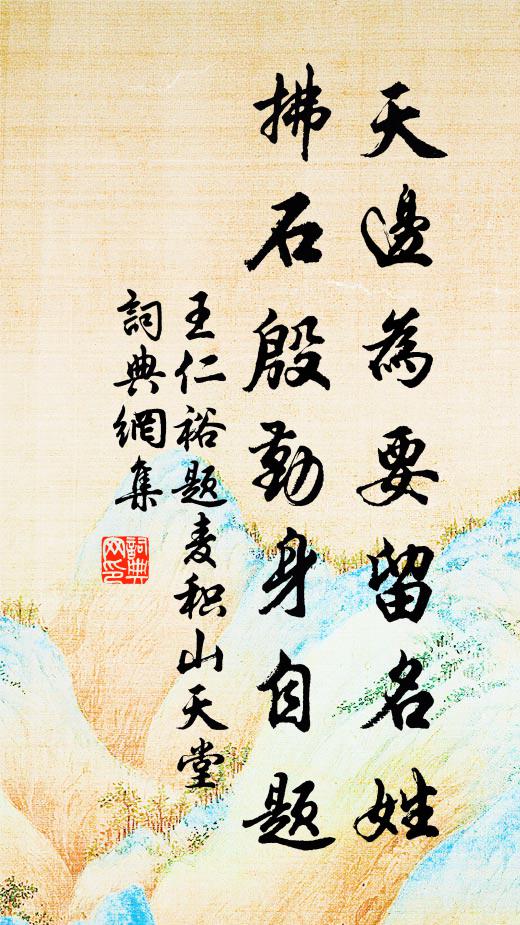 天邊為要留名姓
拂石殷勤身自題
王仁裕题麦积山天堂
詞典網集
詞典
网印